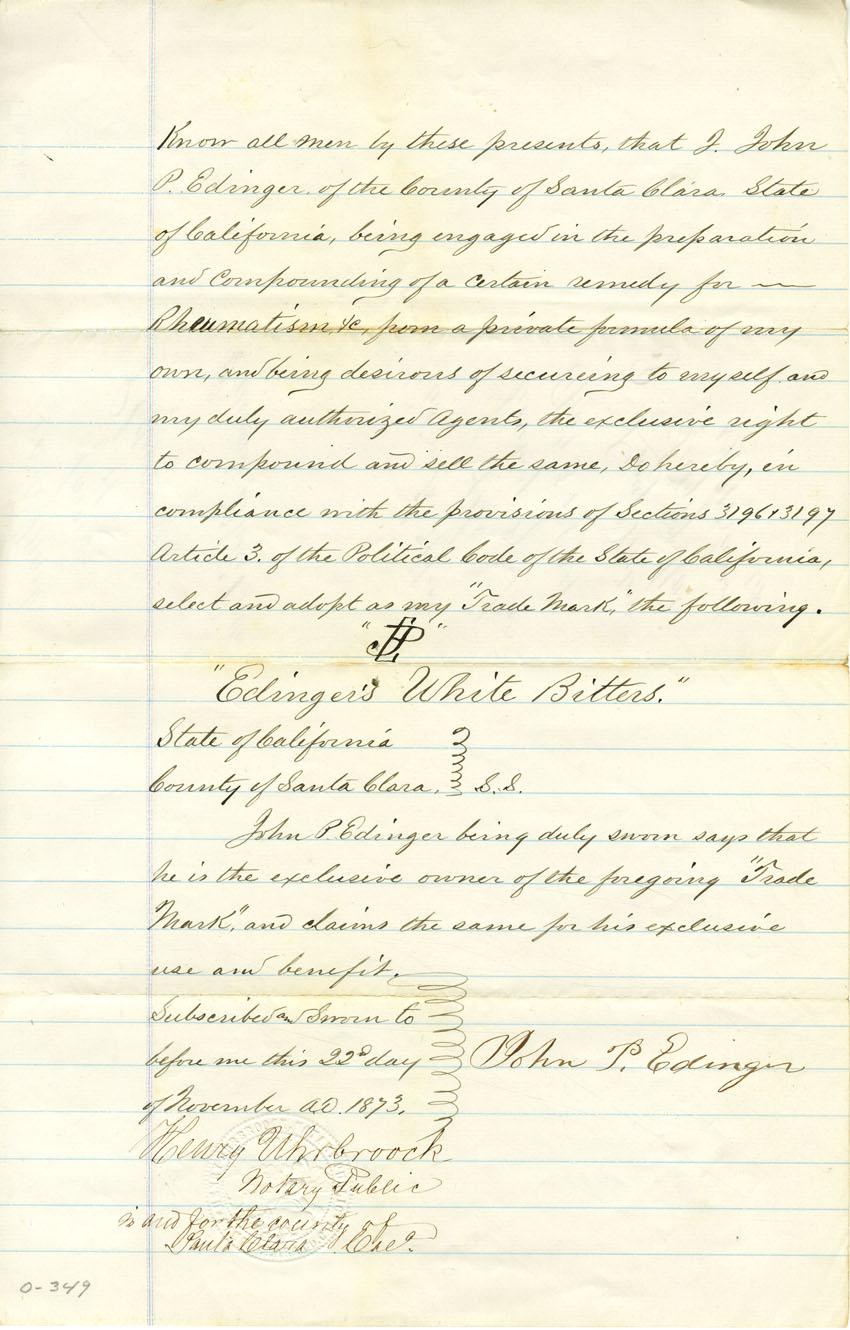 Know all men by these presents, that I. John
P. Edinger. of the County of Santa Clara State
of California, being engaged in the preparation
and compounding of a certain remedy for —
Rheumatism, &c, from a private formula of my
own, and being desirous of secureing to myself and
my duly authorized Agents, the exclusive right
to compound and sell the same, Do hereby, in
compliance with the provisions of Sections 3196 & 3197
Article 3. of the Political Code of the State of California,
select and adopt as my "Trade Mark," the following.
"JPE"
"Edinger's White Bitters."
State of California
County of Santa Clara, S.S.
John P. Edinger being duly sworn says that
he is the exclusive owner of the foregoing "Trade
Mark", and claims the same for his exclusive
use and benefit.
Subscribed and Sworn to
before me this 22d day
of November A.D. 1873.
John P. Edinger
Henry Uhrbroock
Notary Public
in and for the county of
Santa Clara Cal.
O-349